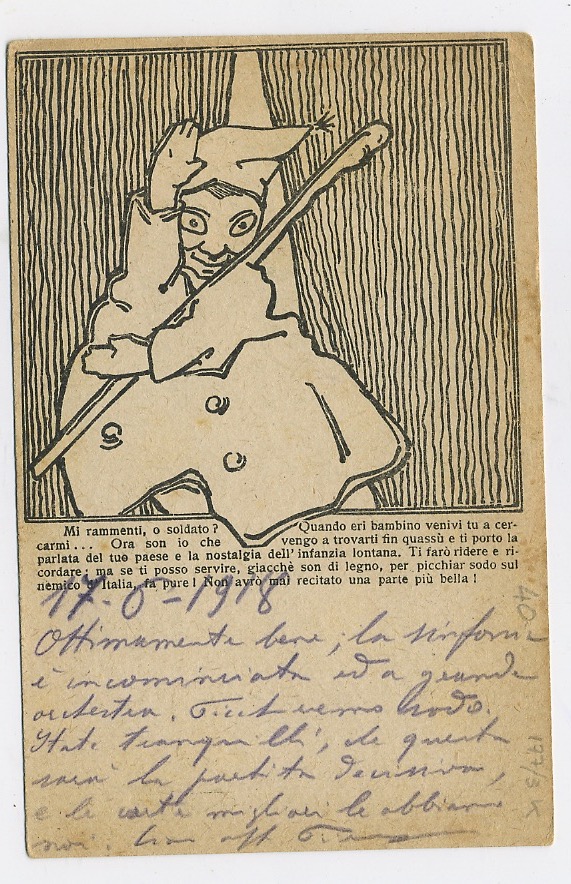 Mi rammenti, o soldato? Quando eri bambino venivi tu a cer-
carmi... Ora son io che vengo a trovarti fin quassù e ti porto la
parlata del tuo paese e la nostalgia dell'infanzia lontana. Ti farò ridere e ri-
cordare; ma se ti posso servire, giacchè son di legno, per picchiar sodo sul
nemico d'Italia, fa pure! Non avrò mai recitato una parte più bella!
17-6-1918
Ottimamente bene; la sinfonia
è incominciata ed a grande
orchestra. sodo.
State tranquilli, che questa
sarà la partita decisiva,
e le carte migliori le abbiamo
noi.
40
177/3 K